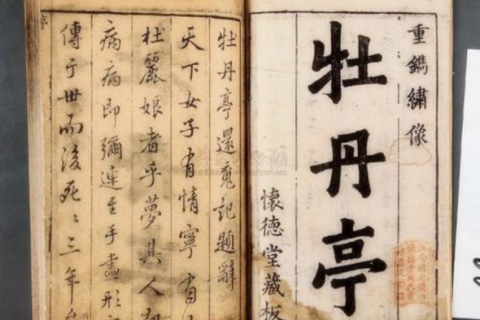 重鐫繡像
牡丹亭
懷德堂藏板
牡丹亭還魂記題辭
天下女子有情寧有
杜麗娘者乎夢其人
病病即彌連至手畫形
傳于世而後死〻三年